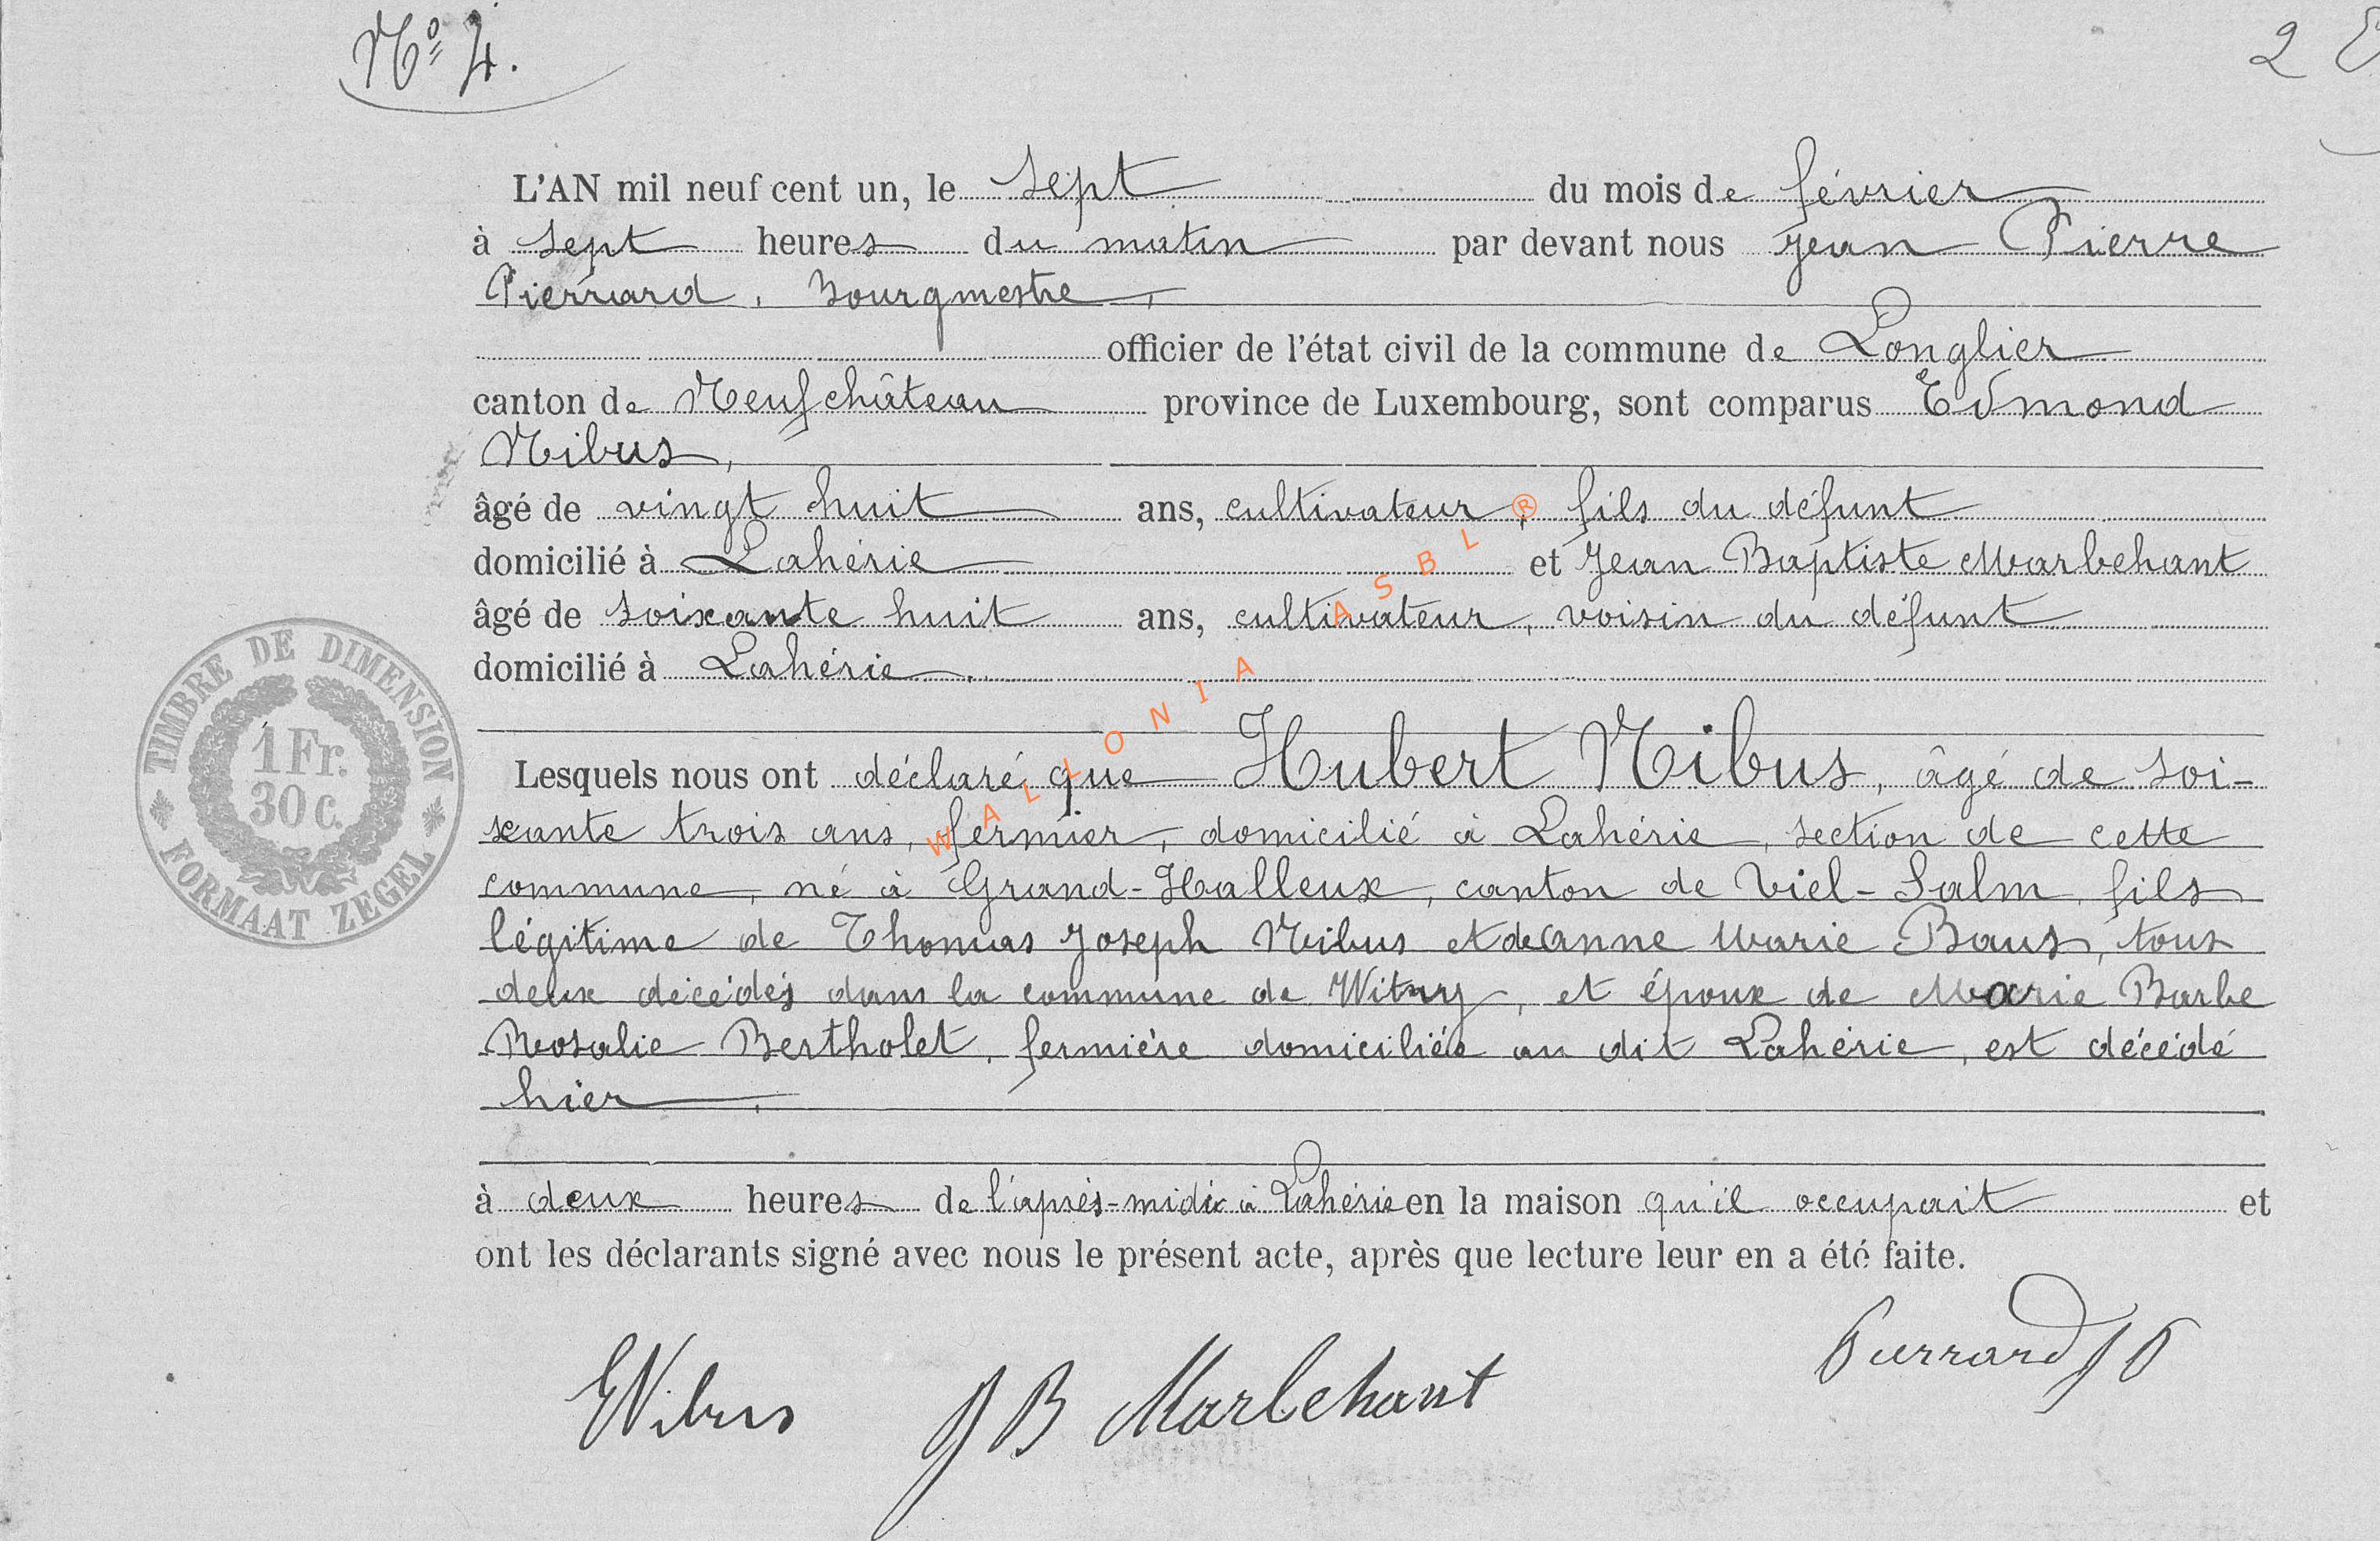 Nº 4.
2
L'AN mil neuf cent un, le sept du mois de février
à sept heures du matin par devant nous Jean Pierre
Pierrard, Bourgmestre,
officier de l'état civil de la commune de Longlier
canton de Neufchâteau province de Luxembourg, sont comparus Edmond
Nibus,
âgé de vingt huit ans, cultivateur, fils du défunt
domicilié à Lahérie et Jean Baptiste Marbehant
âgé de soixante huit ans, cultivateur, voisin du défunt
domicilié à Lahérie.
Lesquels nous ont déclaré que Hubert Nibus, âgé de soi-
xante trois ans, fermier, domicilié à Lahérie, section de cette
commune, né à Grand-Halleux, canton de Viel-Salm, fils
légitime de Thomas Joseph Nibus et de Anne Marie Baus, tous
deux décédés dans la commune de Witry, et époux de Marie Barbe
Rosalie Bertholet, fermière domiciliée au dit Lahérie, est décédé
hier,
à deux heures de l'après-midi à Lahérie en la maison qu'il occupait et
ont les déclarants signé avec nous le présent acte, après que lecture leur en a été faite.
TIMBRE DE DIMENSION
1 Fr.
30 c.
FORMAAT ZEGEL
WALLONIA ASBL ®
ENibus JB Marbehant Pierrard JP